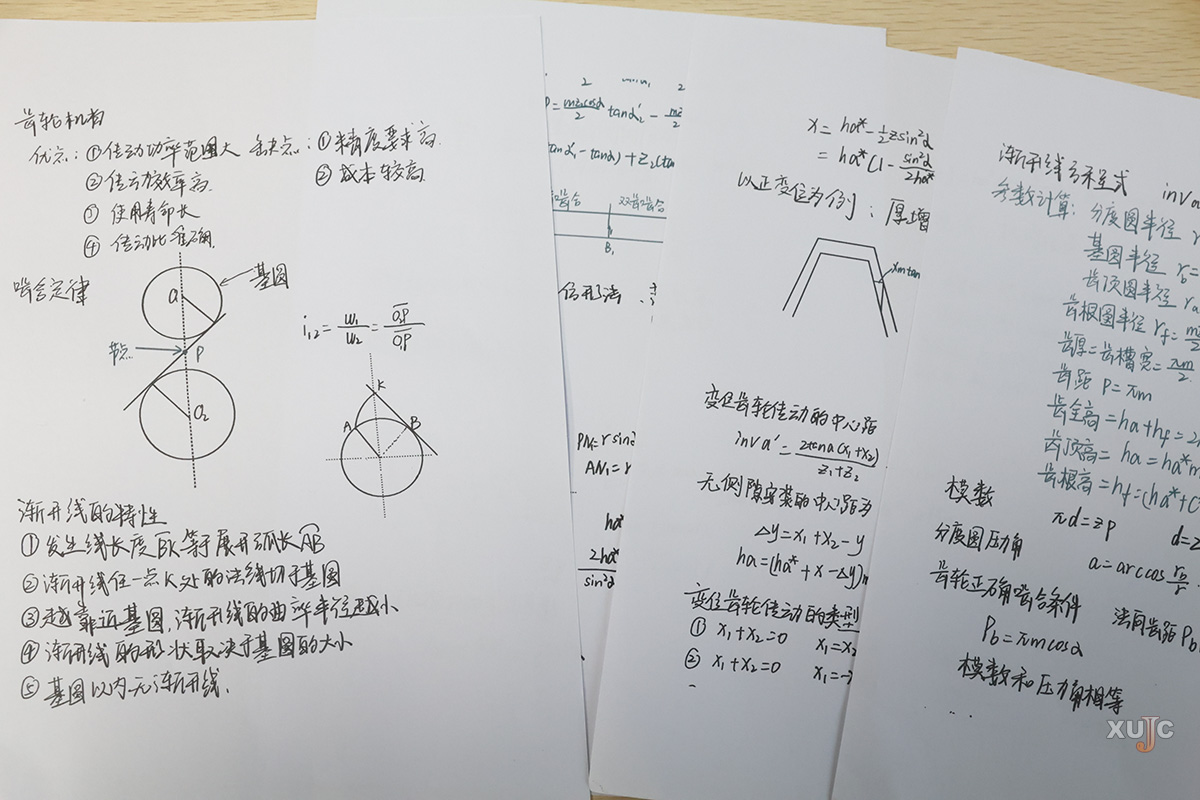 齿轮机构
优点：①传动功率范围大 缺点：①精度要求高.
②传动效率高. ②成本较高.
③ 使用寿命长
④ 传动比准确.
啮合定律
基圆
O
节点
P
O2
i12 = w1/w2 = O2P/O1P
K
A
B
渐开线的特性
①发生线长度BK等于展开弧长AB
②渐开线任一点K处的法线切于基圆
③越靠近基圆,渐开线的曲率半径越小
④渐开线的形状取决于基圆的大小
⑤基圆以内无渐开线.
tanα2' -
tanα1' - tanα) + Z2(tan
双齿啮合
B1
仿形法
PN1 = r sinα
AN1 = r
ha*
2ha*
sin²α
x = ha* - 1/2 z sin²α
= ha* (1 - sin²α/2ha*
以正变位为例：厚增
xm tan
变位齿轮传动的中心距
inv a' = 2tan a (x1+x2)/z1+z2
无侧隙安装的中心距为
Δy = x1 + x2 - y
ha = (ha* + x - Δy)m
变位齿轮传动的类型
① x1+x2=0 x1=x2
② x1+x2=0 x1=-
渐开线方程式 inv a
参数计算: 分度圆半径 r
基圆半径 rb=
齿顶圆半径 ra
齿根圆半径 rf =
齿厚=齿槽宽= πm/2
齿距 P = πm
齿全高 = ha + hf = 2h
齿顶高 = ha = ha*m
齿根高 = hf = (ha* + c
模数
πd = zp d = z
分度圆压力角 a = arccos rb/r
齿轮正确啮合条件 法向齿距 Pb
Pb = πm cosα
模数和压力角相等
XUJC